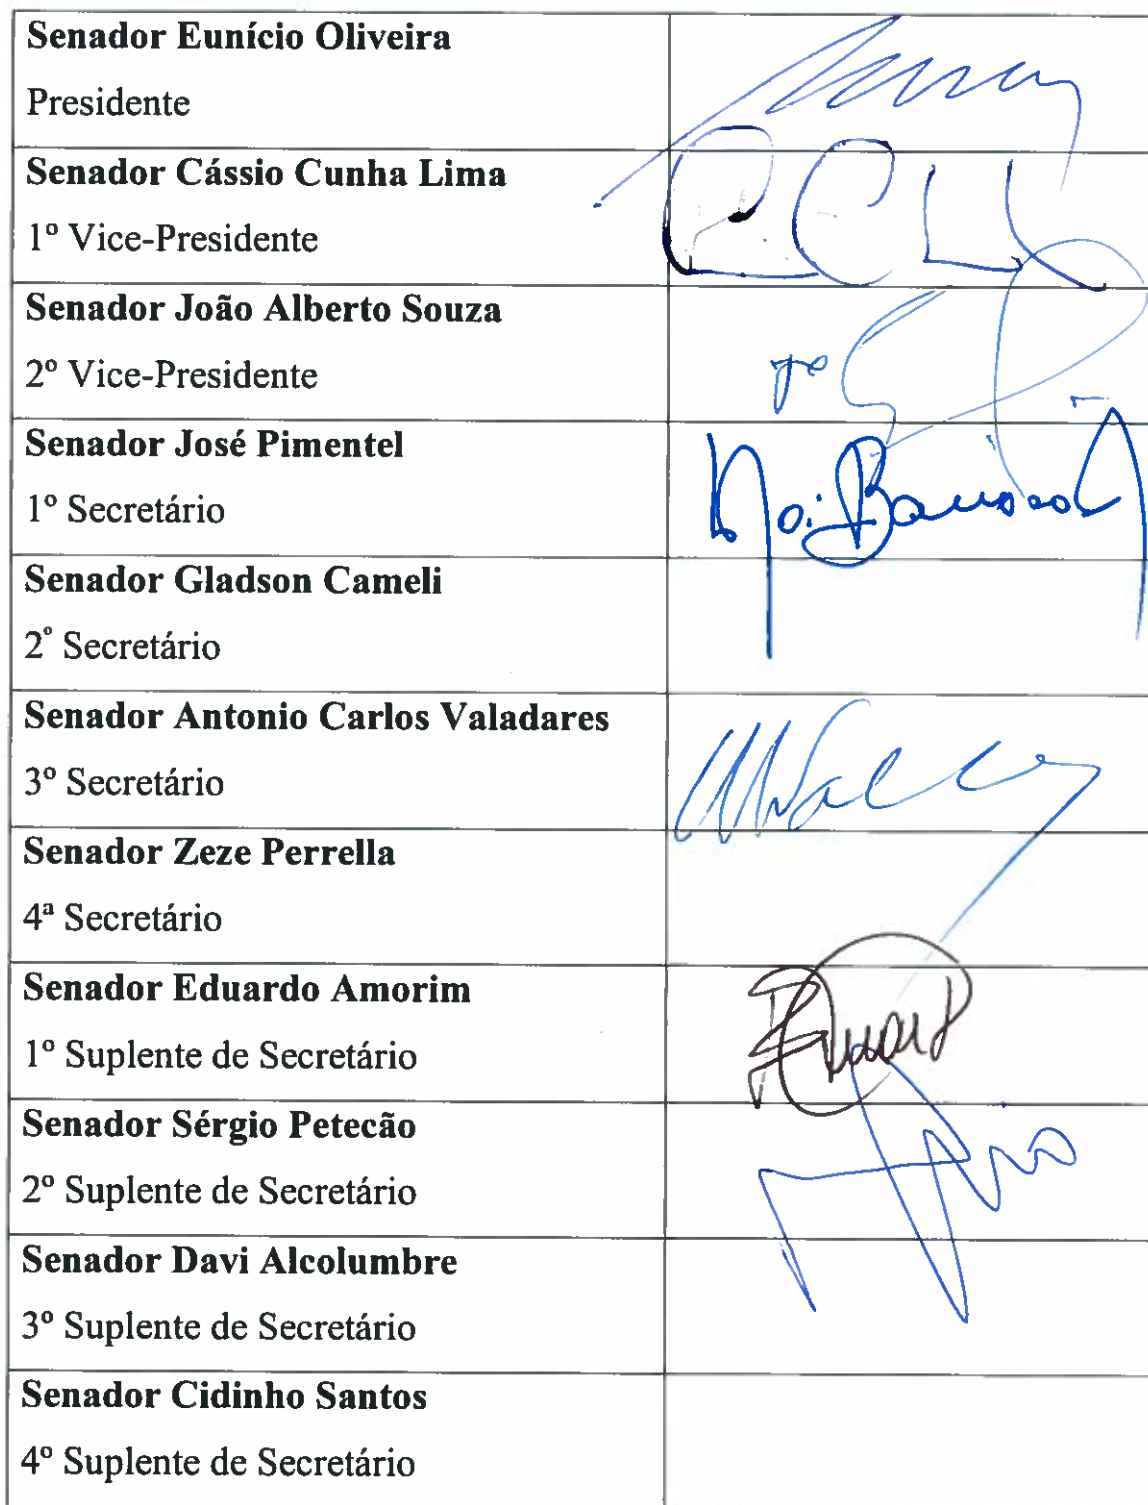 Senador Eunício Oliveira
Presidente
Senador Cássio Cunha Lima
1º Vice-Presidente
CCL
Senador João Alberto Souza
2º Vice-Presidente
Senador José Pimentel
1º Secretário
Senador Gladson Cameli
2º Secretário
Senador Antonio Carlos Valadares
3º Secretário
Senador Zeze Perrella
4ª Secretário
Senador Eduardo Amorim
1º Suplente de Secretário
Senador Sérgio Petecão
2º Suplente de Secretário
Senador Davi Alcolumbre
3º Suplente de Secretário
Senador Cidinho Santos
4º Suplente de Secretário